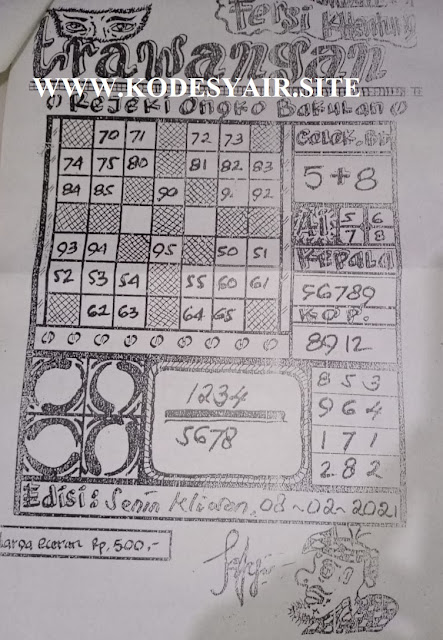 Fersi
Trawangan
WWW.KODESYAIR.SITE
Rejeki Ongko Bakulan
70 71 72 73
74 75 80 81 82 83
84 85 90 92
93 94 95 50 51
52 53 54 55 60 61
62 63 64 65
5+8
Ai 5 6
7 8
Kepala
56789
Kop.
8912
1234
5678
853
964
171
282
Edisi: Senin Kliwon, 08-02-2021
Harga eceran Rp. 500,-